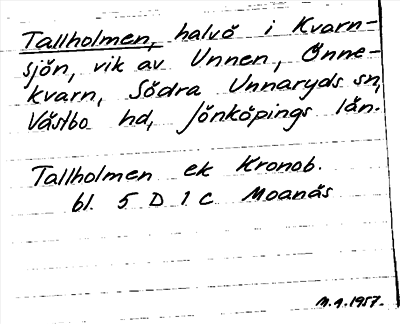 Tallholmen, halvö i Kvarn-
sjön, vik av Unnen, Önne-
kvarn, Södra Unnaryds sn,
Västbo hd, Jönköpings län.
Tallholmen ek Kronob.
bl. 5 D 1 c Moanäs
M.A. 1957.